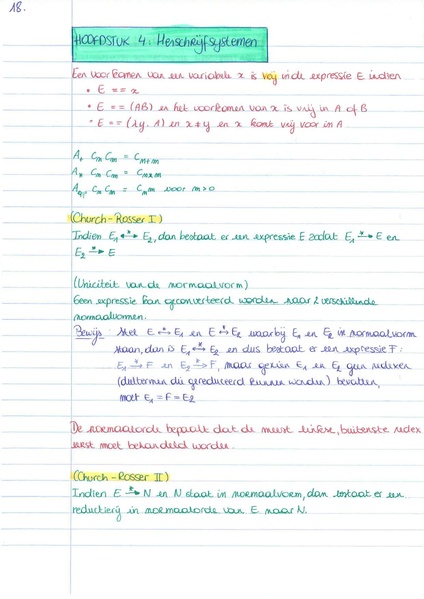 18.
HOOFDSTUK 4: Herschrijfsystemen
Een voorkomen van een variabele x is vrij in de expressie E indien
• E == x
• E == (AB) en het voorkomen van x is vrij in A of B
• E == (λy. A) en x ≠ y en x komt vrij voor in A
A₊ Cₙ Cₘ = Cₘ₊ₙ
Aₓ Cₙ Cₘ = Cₙₓₘ
Cₙ Cₘ = voor m>0
(Church-Rosser I)
Indien E₁ <-*-> E₂, dan bestaat er een expressie E zodat E₁ -*-> E en
E₂ -*-> E
(Uniciteit van de normaalvorm)
Geen expressie kan geconverteerd worden naar 2 verschillende
normaalvormen.
Bewijs: Stel E <-*-> E₁ en E <-*-> E₂ waarbij E₁ en E₂ in normaalvorm
staan, dan is E₁ <-*-> E₂ en dus bestaat er een expressie F:
E₁ -*-> F en E₂ -*-> F, maar gezien E₁ en E₂ geen redexen
(deeltermen die gereduceerd kunnen worden) bevatten,
moet E₁ = F = E₂
De normaalorde bepaalt dat de meest linkse, buitenste redex
eerst moet behandeld worden.
(Church-Rosser II)
Indien E -*-> N en N staat in normaalvorm, dan bestaat er een
reductierij in normaalorde van E naar N.